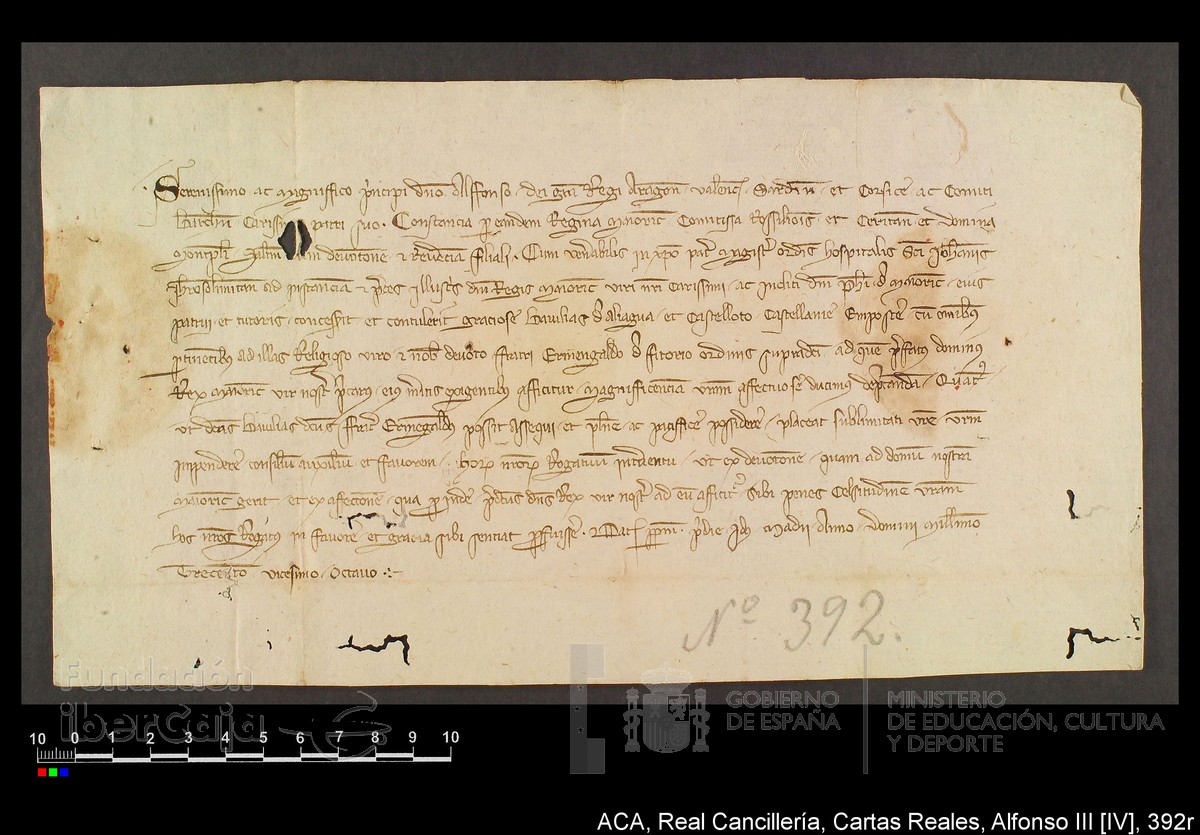 Serenissimo ac Magniffico principi dno Alffonso dei gra Regi Aragon Valenc Sardin et Corsice ac Comiti
Barchn Carissi patri suo Constancia per eandem Regina Maioric Comitissa Rossilionis et Ceritan et domina
Montpli Saltm cum deuotione et Reuerencia filiali Cum venerabilis in xpo pat Magistr ordinis hospitalis Sci Johannis
Jhrosolimitan ad instanciam et preces Illustris dni Regis Maioric viri nri Carissimi ac incliti dni phi de Maioric eius
patrui et tutoris concesserit et contulerit graciose Baiulias de Aliagua et Castelloto Castellanie Emposte cu omibus
ptinentibus ad illas Religioso viro et nob deuoto fratri Ermengaldo de ordinis supradci ad que prefatus dominus
Rex Maioric vir nostr pcarus eius meritis exigentibus afficitur Magnifficencia vram affectuose ducimus deprecandam Quatus
ut dcas Baiulias dcus fratr Ermengaldus possit assequi et plene ac paciffice possidere placeat sublimitati vre vrm
impendere consilium auxilium et fauorem horum nrorum Rogatuum interuentu Ut ex deuotione quam ad domum nostram
Maioric gerit et ex afectione qua pinde pdictus dns Rex vir nostr ad eu afficitur sibi penes Celsitudinem vram
hos nros Rogatus in fauore et gracia sibi senciat profuisse Dat ppini pridie Madii Anno domini Millimo
Trecento vicesimo Octauo
Nº 392.
Fundación
iberCaja
GOBIERNO
DE ESPAÑA
MINISTERIO
DE EDUCACIÓN, CULTURA
Y DEPORTE
10 0 1 2 3 4 5 6 7 8 9 10
ACA, Real Cancillería, Cartas Reales, Alfonso III [IV], 392r